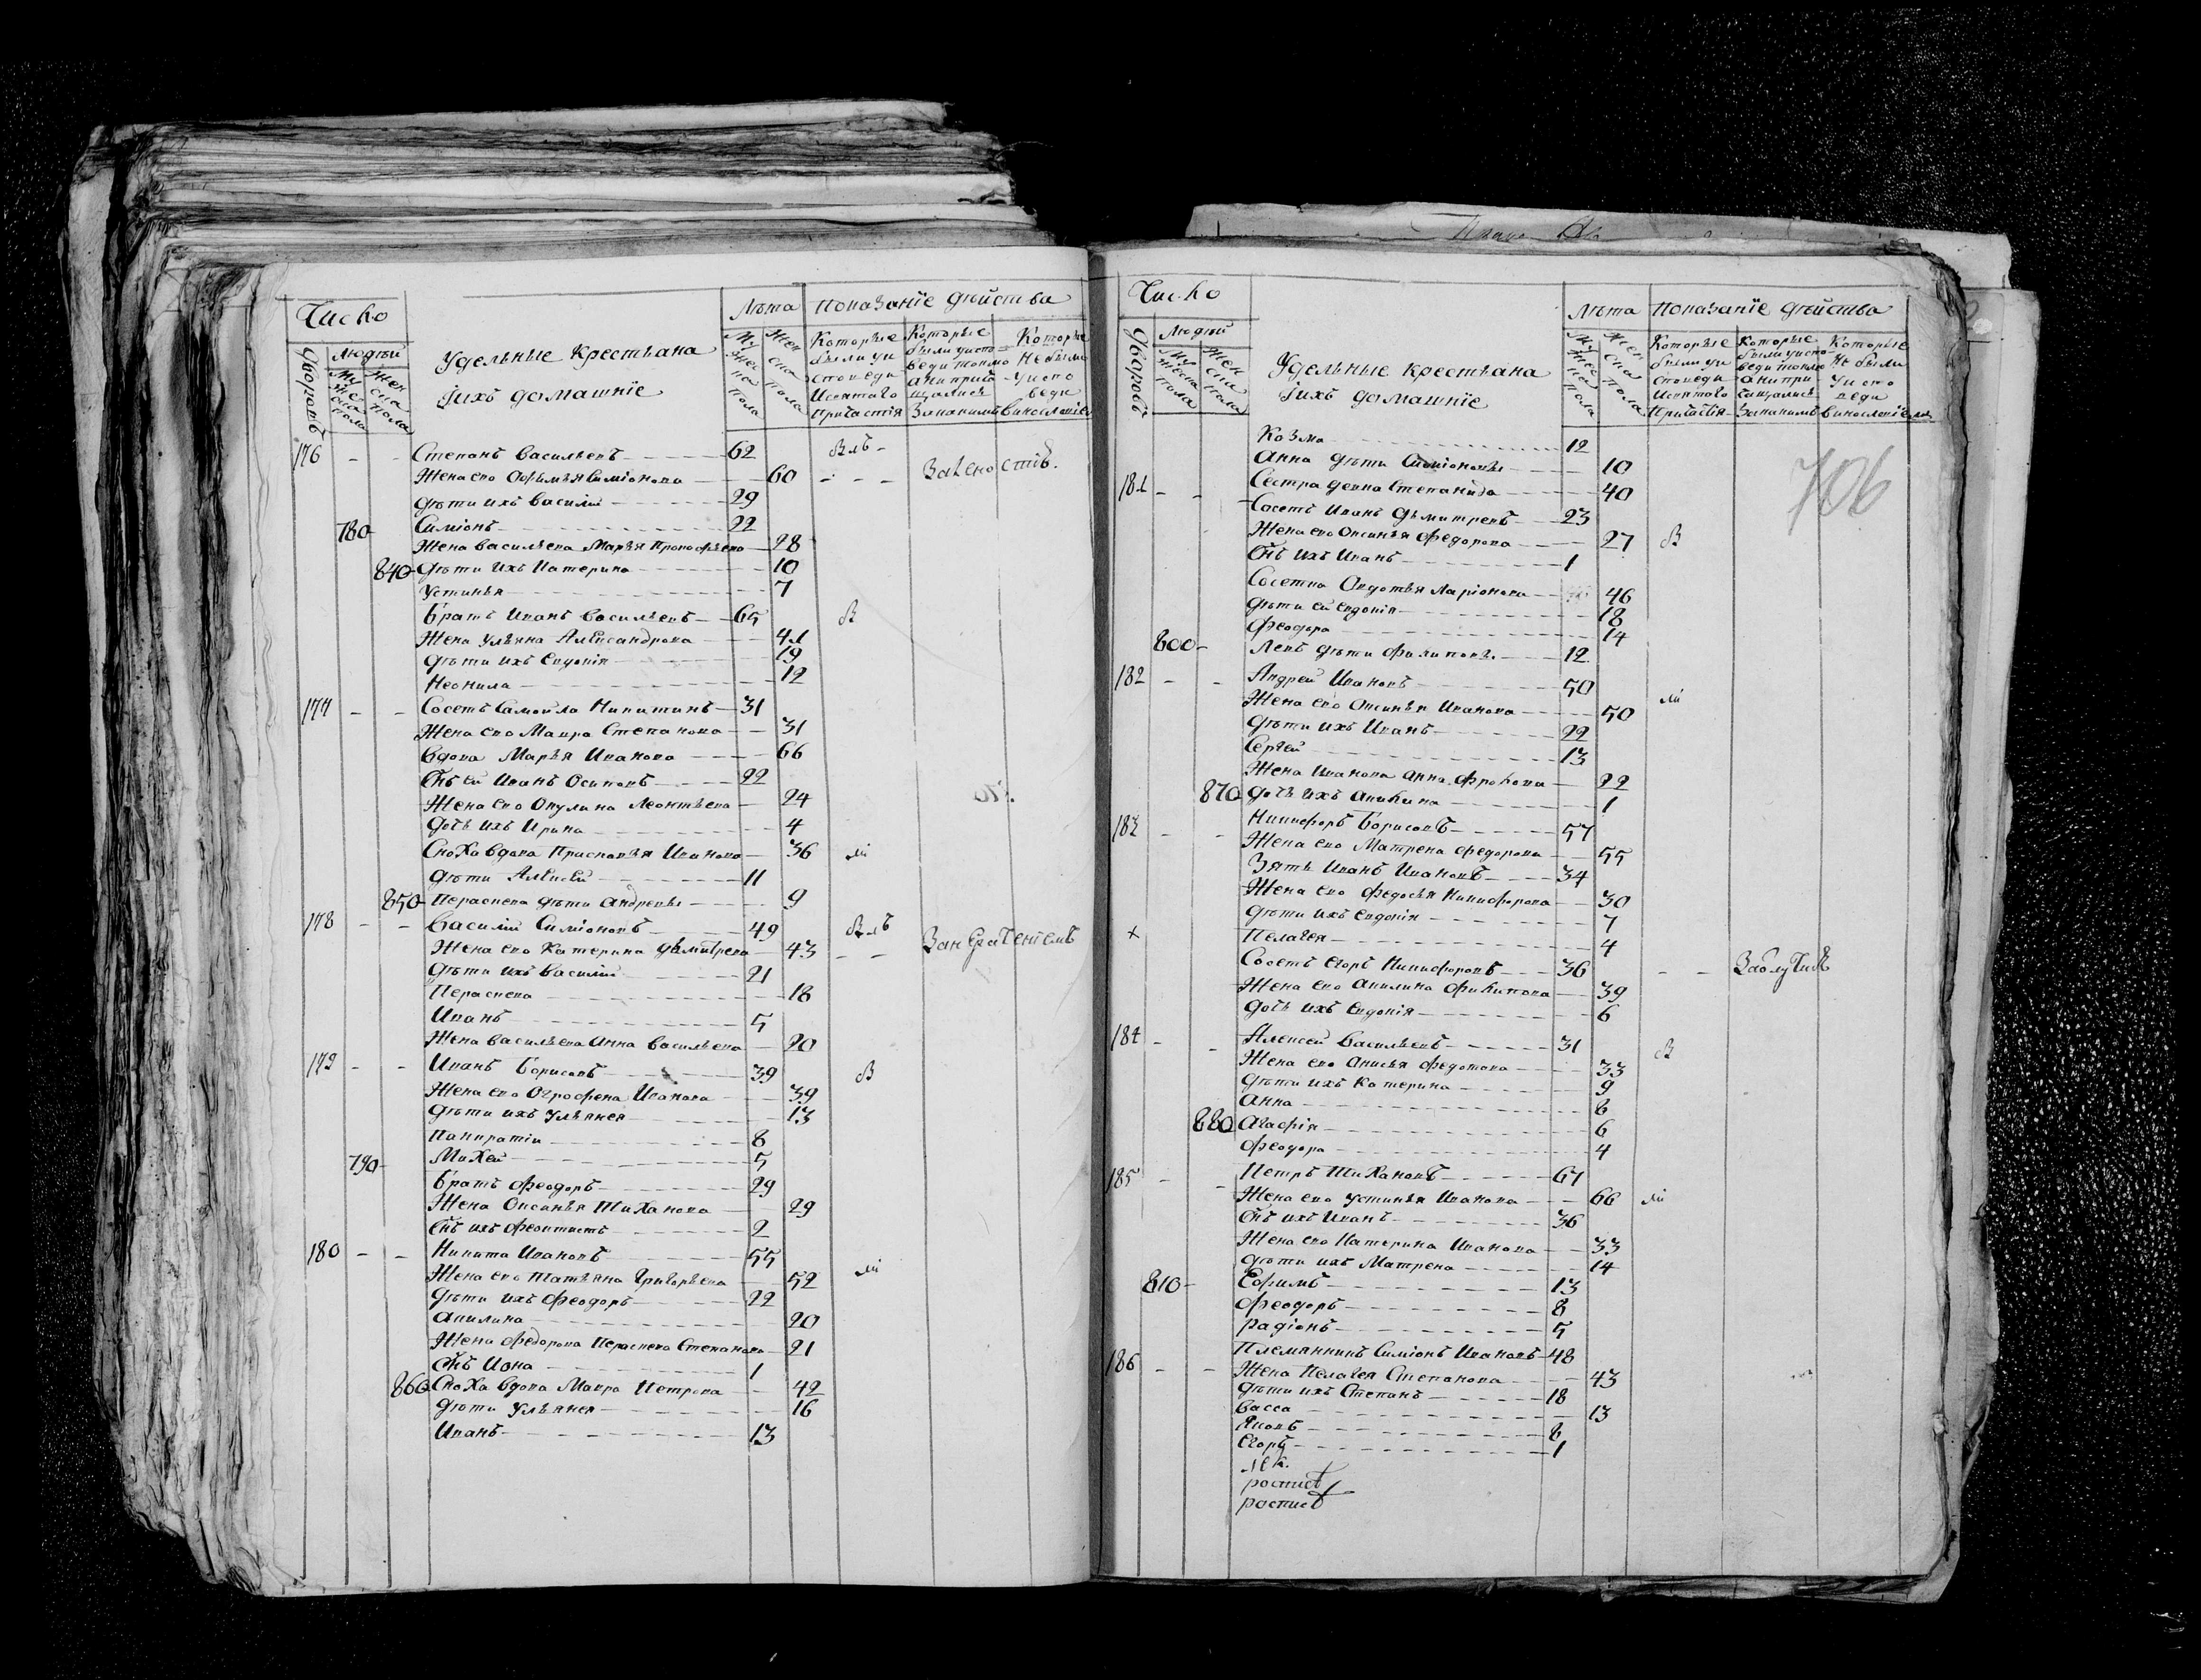 Число
Лѣта Показанїе дѣйства
Дворовъ
Людей
Мужеска пола
Женска пола
Удельные крестьяна
їихъ домашнїе
Мужеска пола
Женска пола
Которые были уисповеди исвятаго причастїя
Которые были уисповеди токмо анипричащались
Которые Небыли уисповеди
176 - - Степанъ васильевъ 62
Жена его Офимья Симіонова 60
дѣти ихъ василий 29
780 Симіонъ 22
Жена васильева Марья Прокофьева 28
840 дѣти ихъ Катерина 10
Устинья 7
братъ иванъ васильевъ 65 в
Жена Ульяна Александрова 41
дѣти ихъ Евдокія 19
Неонила 12
177 - - Сосетъ Самойла Никитинъ 31
Жена его Мавра Степанова 31
вдова Марья Иванова 66
Снъ ей Иванъ Осиповъ 22
Жена его Окулина Леонтьева 24
дочь ихъ Ирина 4
Сноха вдова Прасковья Иванова 36
дѣти Алексей 11
850 Пераскева дѣти Андреевы 9
178 - - василий Симіоновъ 49
Жена его Катерина дьмитрева 43
дѣти ихъ василий 21
Пераскева 18
Иванъ 5
Жена васильева Анна васильева 20
179 - - Иванъ борисовъ 39 в
Жена его Огрофена Иванова 39
дѣти ихъ Ульянея 13
Панкратій 8
790 Михей 5
братъ Феодоръ 29
Жена Оксинья Тиханова 29
Снъ ихъ Феоктистъ 2
180 - - Никита Ивановъ 55
Жена его Татьяна Григорьева 52
дѣти ихъ Феодоръ 22
Акилина 20
Жена Федорова Пераскева Степанова 21
Снъ Иона 1
860 Сноха вдова Мавра Петрова 42
дѣти Ульянея 16
Иванъ 13
Число
Лѣта Показанїе дѣйства
Дворовъ
Людей
Мужеска пола
Женска пола
Удельные крестьяна
їихъ домашнїе
Мужеска пола
Женска пола
Которые были уисповеди исвятаго причастїя
Которые были уисповеди токмо анипричащались
Которые Небыли уисповеди
706
Козма 12
Анна дѣти Симіоновы 10
Сестра девка Степанида 40
181 - - Сосетъ Иванъ дьмитревъ 23
Жена его Оксинья Федорова 27 в
Снъ ихъ Иванъ 1
Сосетка Овдотья Ларіонова 46
дѣти ей Евдокія 18
Феодора 14
800 Левъ дѣти Филиповы 12
182 - - Андрей Ивановъ 50
Жена его Оксинья Иванова 50
дѣти ихъ Иванъ 22
Сергей 13
Жена Иванова Анна Фролова 22
870 дочь ихъ Акилина 1
183 - - Никифоръ борисовъ 57
Жена его Матрена Федорова 55
Зять Иванъ Ивановъ 34
Жена его Федосья Никифорова 30
дѣти ихъ Евдокія 7
Пелагея 4
Сосетъ Егоръ Никифоровъ 36
Жена его Акилина Филипова 39
дочь ихъ Евдокія 6
184 - - Алексей васильевъ 31 в
Жена его Анисья Федотова 33
дѣти ихъ Катерина 9
Анна 8
880 Агафія 6
Феодора 4
185 - - Петръ Тихановъ 67
Жена его Устинья Иванова 66
Снъ ихъ Иванъ 36
Жена его Катерина Иванова 33
дѣти ихъ Матрена 14
810 Ефимъ 13
Феодоръ 8
Радіонъ 5
186 - - Племянникъ Симіонъ Ивановъ 48
Жена Пелагея Степанова 43
дѣти ихъ Степанъ 18
васса 13
Яковъ 8
Егоръ 1